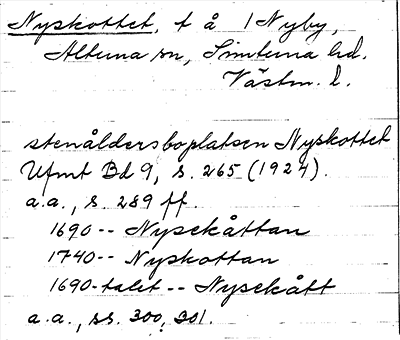 Nyskottet, t å / Nyby,
Altuna sn, Simtuna hd.
Västm. l.
stenåldersboplatsen Nyskottet
Ufmt Bd 9, s. 265 (1924).
a.a., s. 289 ff.
1690 -- Nysekåttan
1740 -- Nyskottan
1690-talet -- Nysekått
a.a., ss. 300, 301.